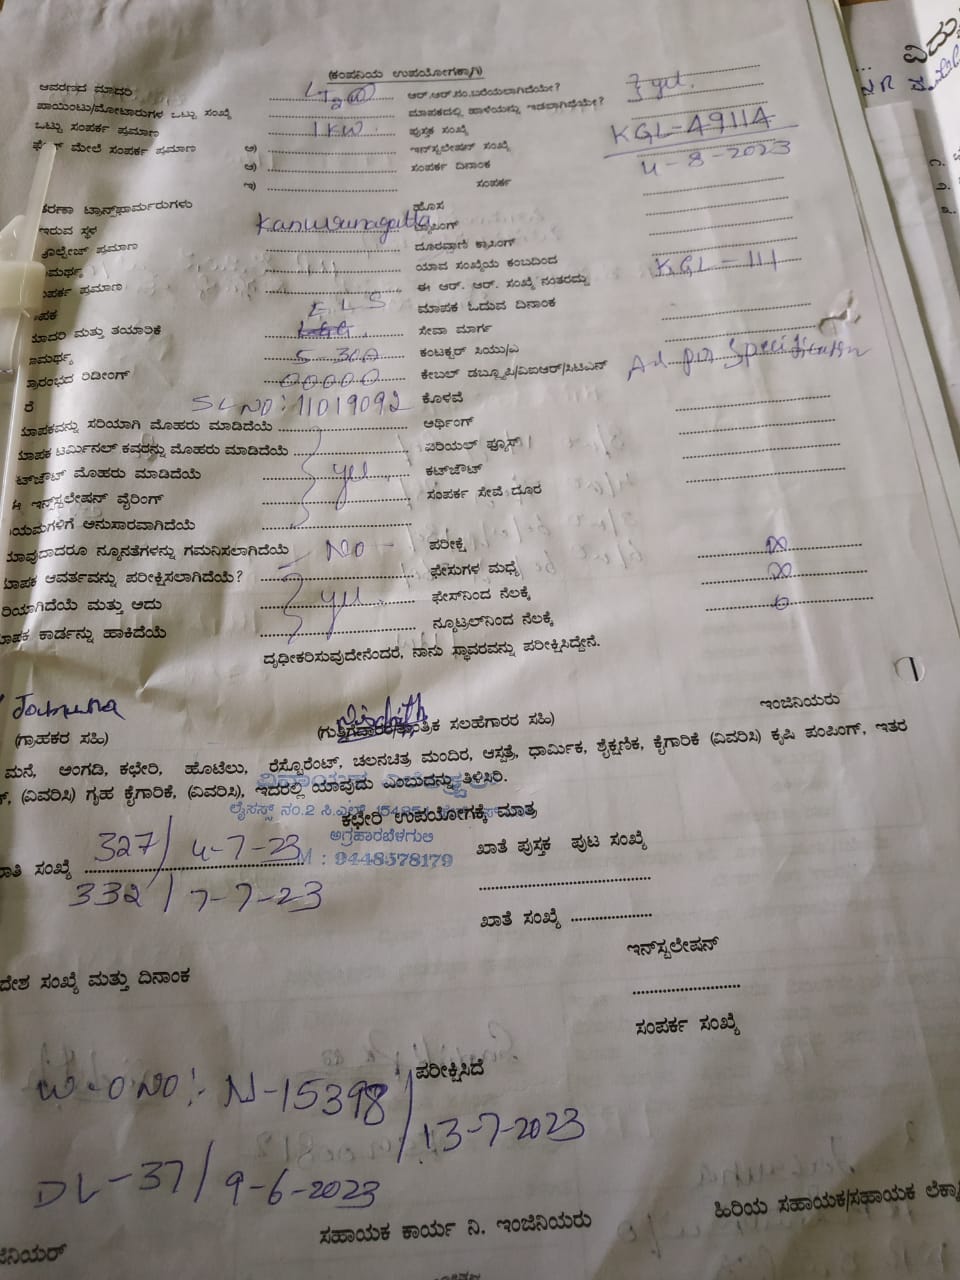 (ಕಂಪನಿಯ ಉಪಯೋಗಕ್ಕಾಗಿ)
ಆವರಣದ ಮಾದರಿ LT2(a) ಆರ್.ಆರ್.ನಂ.ಬರೆಯಲಾಗಿದೆಯೇ?
ಪಾಯಿಂಟು/ಮೋಟಾರುಗಳ ಒಟ್ಟು ಸಂಖ್ಯೆ ಮಾಪಕದಲ್ಲಿ ಹಾಳೆಯನ್ನು ಇಡಲಾಗಿದೆಯೇ? yes
ಒಟ್ಟು ಸಂಪರ್ಕ ಪ್ರಮಾಣ 1KW ಪುಸ್ತಕ ಸಂಖ್ಯೆ
ಮೇಲೆ ಸಂಪರ್ಕ ಪ್ರಮಾಣ ಅ) ಇನ್‌ಸ್ಟಲೇಷನ್ ಸಂಖ್ಯೆ KGL-49114
ಆ) ಸಂಪರ್ಕ ದಿನಾಂಕ 4-8-2023
ಇ) ಸಂಪರ್ಕ
ಟ್ರಾನ್ಸ್‌ಫಾರ್ಮರುಗಳು ಹೊಸ
ಇರುವ ಸ್ಥಳ
ಪ್ರಮಾಣ ದೂರವಾಣಿ ಕ್ರಾಸಿಂಗ್
ಯಾವ ಸಂಖ್ಯೆಯ ಕಂಬದಿಂದ
ಪ್ರಮಾಣ ಈ ಆರ್. ಆರ್. ಸಂಖ್ಯೆ ನಂತರದ್ದು KGL-111
ELS ಮಾಪಕ ಓದುವ ದಿನಾಂಕ
ಮತ್ತು ತಯಾರಿಕೆ ಸೇವಾ ಮಾರ್ಗ
5-30A ಕಂಟಕ್ಟರ್ ಸಿಯು/ಎ
ರಿಡೀಂಗ್ 00000 ಕೇಬಲ್ ಡಬ್ಲ್ಯೂಪಿ/ವಿಐಆರ್/ಸಿಟಿಎನ್ As per Specification
SL NO:11019092 ಕೊಳವೆ
ಸರಿಯಾಗಿ ಮೊಹರು ಮಾಡಿದೆಯೆ ಅರ್ಥಿಂಗ್
ಟರ್ಮಿನಲ್ ಕವರನ್ನು ಮೊಹರು ಮಾಡಿದೆಯೆ ಏರಿಯಲ್ ಫ್ಯೂಸ್
ಮೊಹರು ಮಾಡಿದೆಯೆ yes ಕಟ್‌ಔಟ್
ಇನ್‌ಸ್ಟಲೇಷನ್ ವೈರಿಂಗ್ ಸಂಪರ್ಕ ಸೇವೆ ದೂರ
ಅನುಸಾರವಾಗಿದೆಯೆ
ನ್ಯೂನತೆಗಳನ್ನು ಗಮನಿಸಲಾಗಿದೆಯೆ No ಪರೀಕ್ಷೆ
ಆವರ್ತವನ್ನು ಪರೀಕ್ಷಿಸಲಾಗಿದೆಯೆ? ಫೇಸುಗಳ ಮಧ್ಯೆ ∞
ಮತ್ತು ಅದು yes ಫೇಸ್‌ನಿಂದ ನೆಲಕ್ಕೆ ∞
ಕಾರ್ಡನ್ನು ಹಾಕಿದೆಯೆ ನ್ಯೂಟ್ರಲ್‌ನಿಂದ ನೆಲಕ್ಕೆ 0
ದೃಢೀಕರಿಸುವುದೇನೆಂದರೆ, ನಾನು ಸ್ಥಾವರವನ್ನು ಪರೀಕ್ಷಿಸಿದ್ದೇನೆ.
Jamuna
(ಗ್ರಾಹಕರ ಸಹಿ) (ಗುತ್ತಿಗೆದಾರರ/ತಾಂತ್ರಿಕ ಸಲಹೆಗಾರರ ಸಹಿ) ಇಂಜಿನಿಯರು
ಮನೆ, ಅಂಗಡಿ, ಕಛೇರಿ, ಹೊಟೆಲು, ರೆಸ್ಟೊರೆಂಟ್, ಚಲನಚಿತ್ರ ಮಂದಿರ, ಆಸ್ಪತ್ರೆ, ಧಾರ್ಮಿಕ, ಶೈಕ್ಷಣಿಕ, ಕೈಗಾರಿಕೆ (ವಿವರಿಸಿ) ಕೃಷಿ ಪಂಪಿಂಗ್, ಇತರ
(ವಿವರಿಸಿ) ಗೃಹ ಕೈಗಾರಿಕೆ, (ವಿವರಿಸಿ), ಇದರಲ್ಲಿ ಯಾವುದು ಎಂಬುದನ್ನು ತಿಳಿಸಿರಿ.
ಕಛೇರಿ ಉಪಯೋಗಕ್ಕೆ ಮಾತ್ರ
ಅಗ್ರಹಾರಬೆಳಗುಲಿ
M : 9448578179
ಸಂಖ್ಯೆ 327/ 4-7-23 ಖಾತೆ ಪುಸ್ತಕ ಪುಟ ಸಂಖ್ಯೆ
332/ 7-7-23
ಖಾತೆ ಸಂಖ್ಯೆ
ಇನ್‌ಸ್ಟಲೇಷನ್
ಸಂಖ್ಯೆ ಮತ್ತು ದಿನಾಂಕ
ಸಂಪರ್ಕ ಸಂಖ್ಯೆ
ಪರೀಕ್ಷಿಸಿದೆ
W-O NO:- N-15398/13-7-2023
DL-37/9-6-2023
ಸಹಾಯಕ ಕಾರ್ಯ ನಿ. ಇಂಜಿನಿಯರು ಹಿರಿಯ ಸಹಾಯಕ/ಸಹಾಯಕ